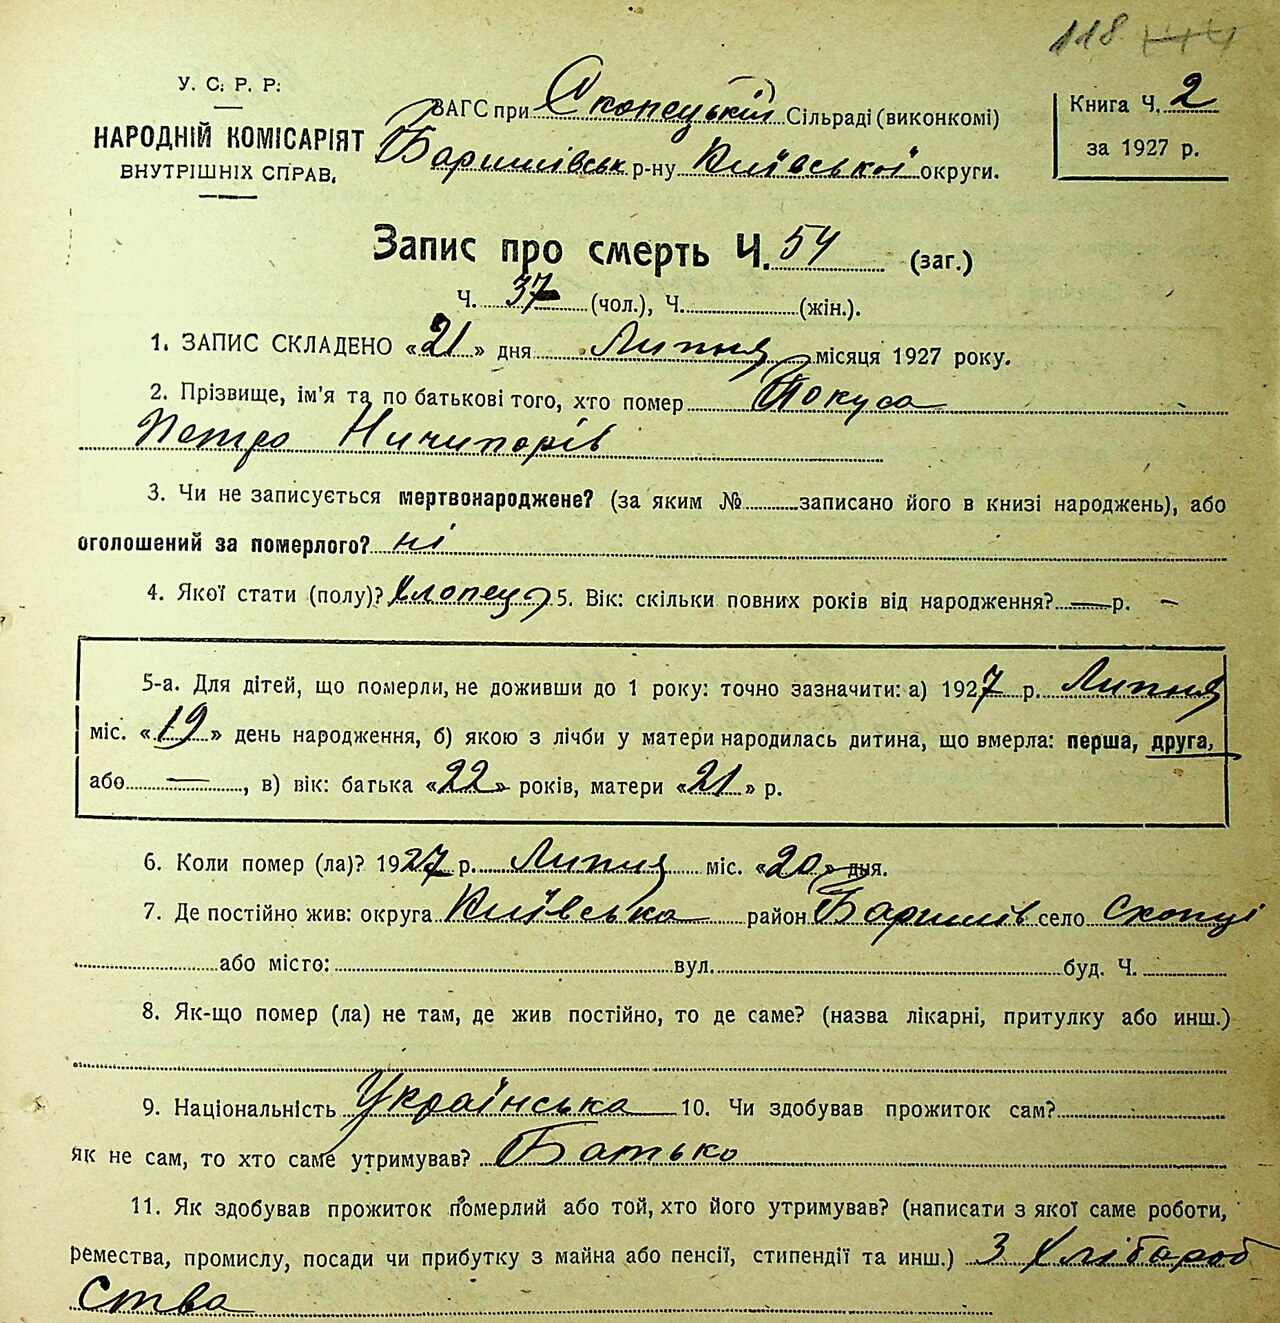 118 144
У. С. Р. Р.
НАРОДНІЙ КОМІСАРІЯТ
ВНУТРІШНІХ СПРАВ.
ЗАГС при Скопецькій Сільраді (виконкомі)
Баришівськ р-ну Київської округи.
Книга Ч. 2
за 1927 р.
Запис про смерть Ч. 54 (заг.)
Ч. 37 (чол.), Ч. (жін.).
1. ЗАПИС СКЛАДЕНО «21» дня Липня місяця 1927 року.
2. Прізвище, ім'я та по батькові того, хто помер Покуса
Петро Ничипорів
3. Чи не записується мертвонароджене? (за яким № записано його в книзі народжень), або
оголошений за померлого? ні
4. Якої стати (полу)? Хлопець 5. Вік: скільки повних років від народження? — р. —
5-а. Для дітей, що померли, не доживши до 1 року: точно зазначити: а) 1927 р. Липня
міс. «19» день народження, б) якою з лічби у матери народилась дитина, що вмерла: перша, друга,
або — , в) вік: батька «22» років, матери «21» р.
6. Коли помер (ла)? 1927 р. Липня міс. «20» дня.
7. Де постійно жив: округа Київська район Баришів село Скопці
або місто: вул. буд. Ч.
8. Як-що помер (ла) не там, де жив постійно, то де саме? (назва лікарні, притулку або инш.)
9. Національність Українська 10. Чи здобував прожиток сам?
як не сам, то хто саме утримував? Батько
11. Як здобував прожиток померлий або той, хто його утримував? (написати з якої саме роботи,
ремества, промислу, посади чи прибутку з майна або пенсії, стипендії та инш.) З Хлібороб
ства